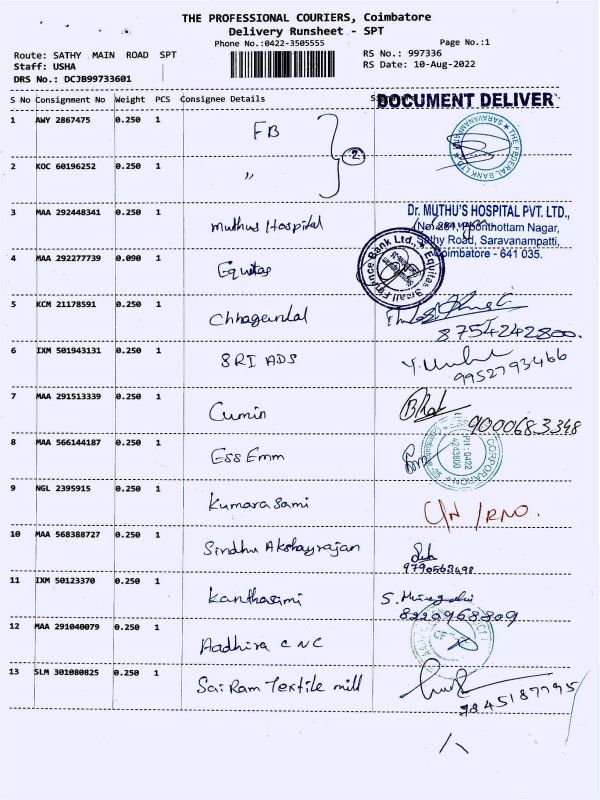 THE PROFESSIONAL COURIERS, Coimbatore
Delivery Runsheet - SPT
Phone No.:0422-3505555
Page No.:1
Route: SATHY MAIN ROAD SPT
RS No.: 997336
Staff: USHA
RS Date: 10-Aug-2022
DRS No.: DCJB99733601
S No Consignment No Weight PCS Consignee Details
DOCUMENT DELIVER
1 AWY 2867475 0.250 1 FB
2
THE FEDERAL BANK LTD. SARAVANAMPATTI
2 KOC 60196252 0.250 1 "
3 MAA 292448341 0.250 1 Muthus Hospital
Dr. MUTHU'S HOSPITAL PVT. LTD.,
Ponthottam Nagar,
Sathy Road, Saravanampatti,
Coimbatore - 641 035.
4 MAA 292277739 0.090 1 Equitas
Equitas Small Finance Bank Ltd.,
5 KCM 21178591 0.250 1 Chhaganlal
8754242800.
6 IXM 501943131 0.250 1 SRI ADS
9952793466
7 MAA 291513339 0.250 1 Cumin
9000683348
8 MAA 566144187 0.250 1 Ess Emm
CORPORATION
PH : 0422
4243800
9 NGL 2395915 0.250 1 Kumarasami
C/N / RNO.
10 MAA 568388727 0.250 1 Sindhu Akshayrajan
9790568498
11 IXM 50123370 0.250 1 Kanthasami
8220968809
12 MAA 291040079 0.250 1 Aadhira CNC
13 SLM 301080825 0.250 1 Sai Ram Textile mill
9845187795